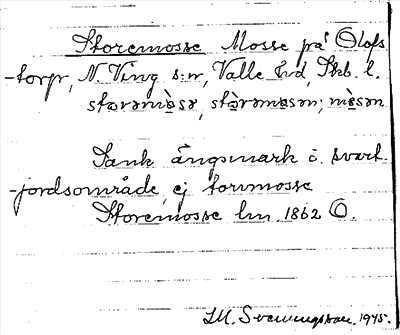 Storemosse Mosse på Olofs
-torp, N. Ving s:n, Valle hd, Skb. l.
storəmòsə, stòrəmosən; mòsən
Sank ängsmark i svart
-jordsområde, ej torvmosse
Storemosse lm. 1862 O.
I.M. Svenungsson. 1945.